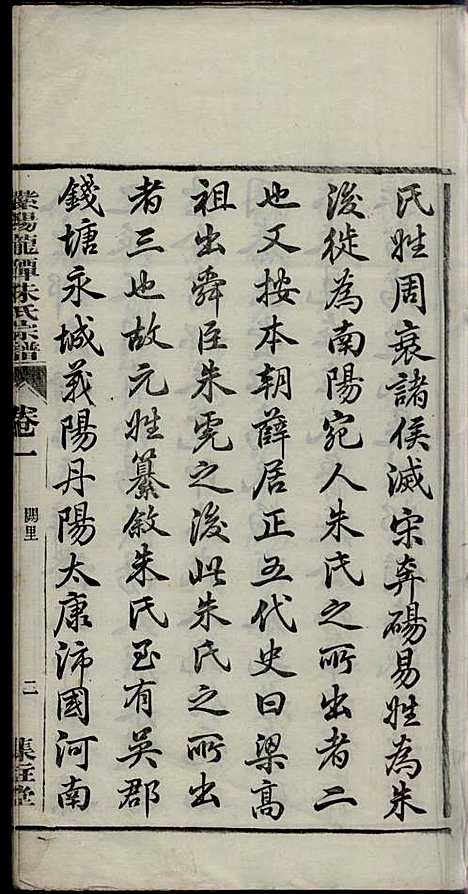 氏姓周衰諸侯滅宋奔碭易姓為朱
後徙為南陽宛人朱氏之所出者二
也又按本朝薛居正五代史曰梁高
祖出舜臣朱虎之後此朱氏之所出
者三也故元姓纂敘朱氏至有吳郡
錢塘永城義陽丹陽太康沛國河南
紫陽龍潭朱氏宗譜
卷一
闕里
二
集註堂